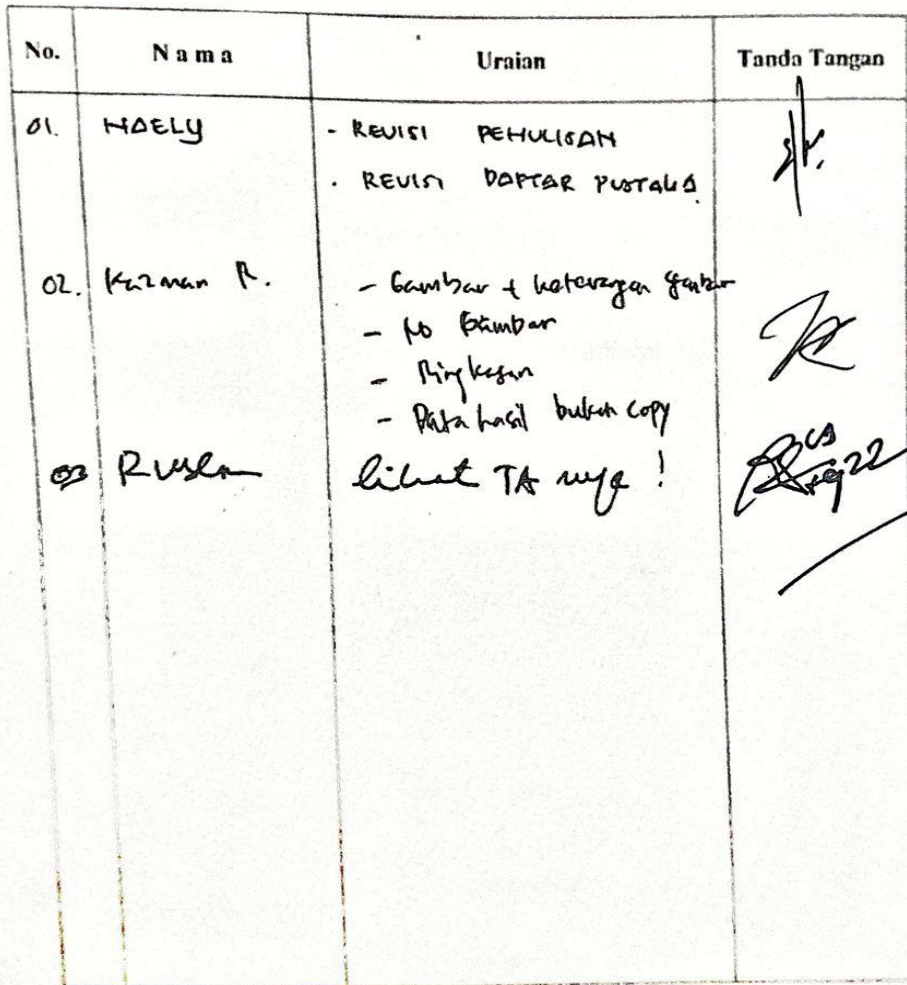 No. N a m a Uraian Tanda Tangan
01. NAELY - REVISI PENULISAN
- REVISI DAFTAR PUSTAKA
02. Kazman R. - Gambar + keterangan gambar
- No Gambar
- Ringkasan
- Data hasil bukan copy
03 Ruslan lihat TA nya !